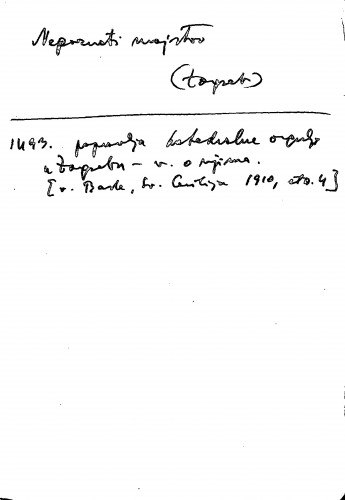 Nepoznati majstor
(Zagreb)
1493. popravlja katedralne orgulje
u Zagrebu – v. o njima.
[v. Barle, Sv. Cecilija 1910, str. 4]